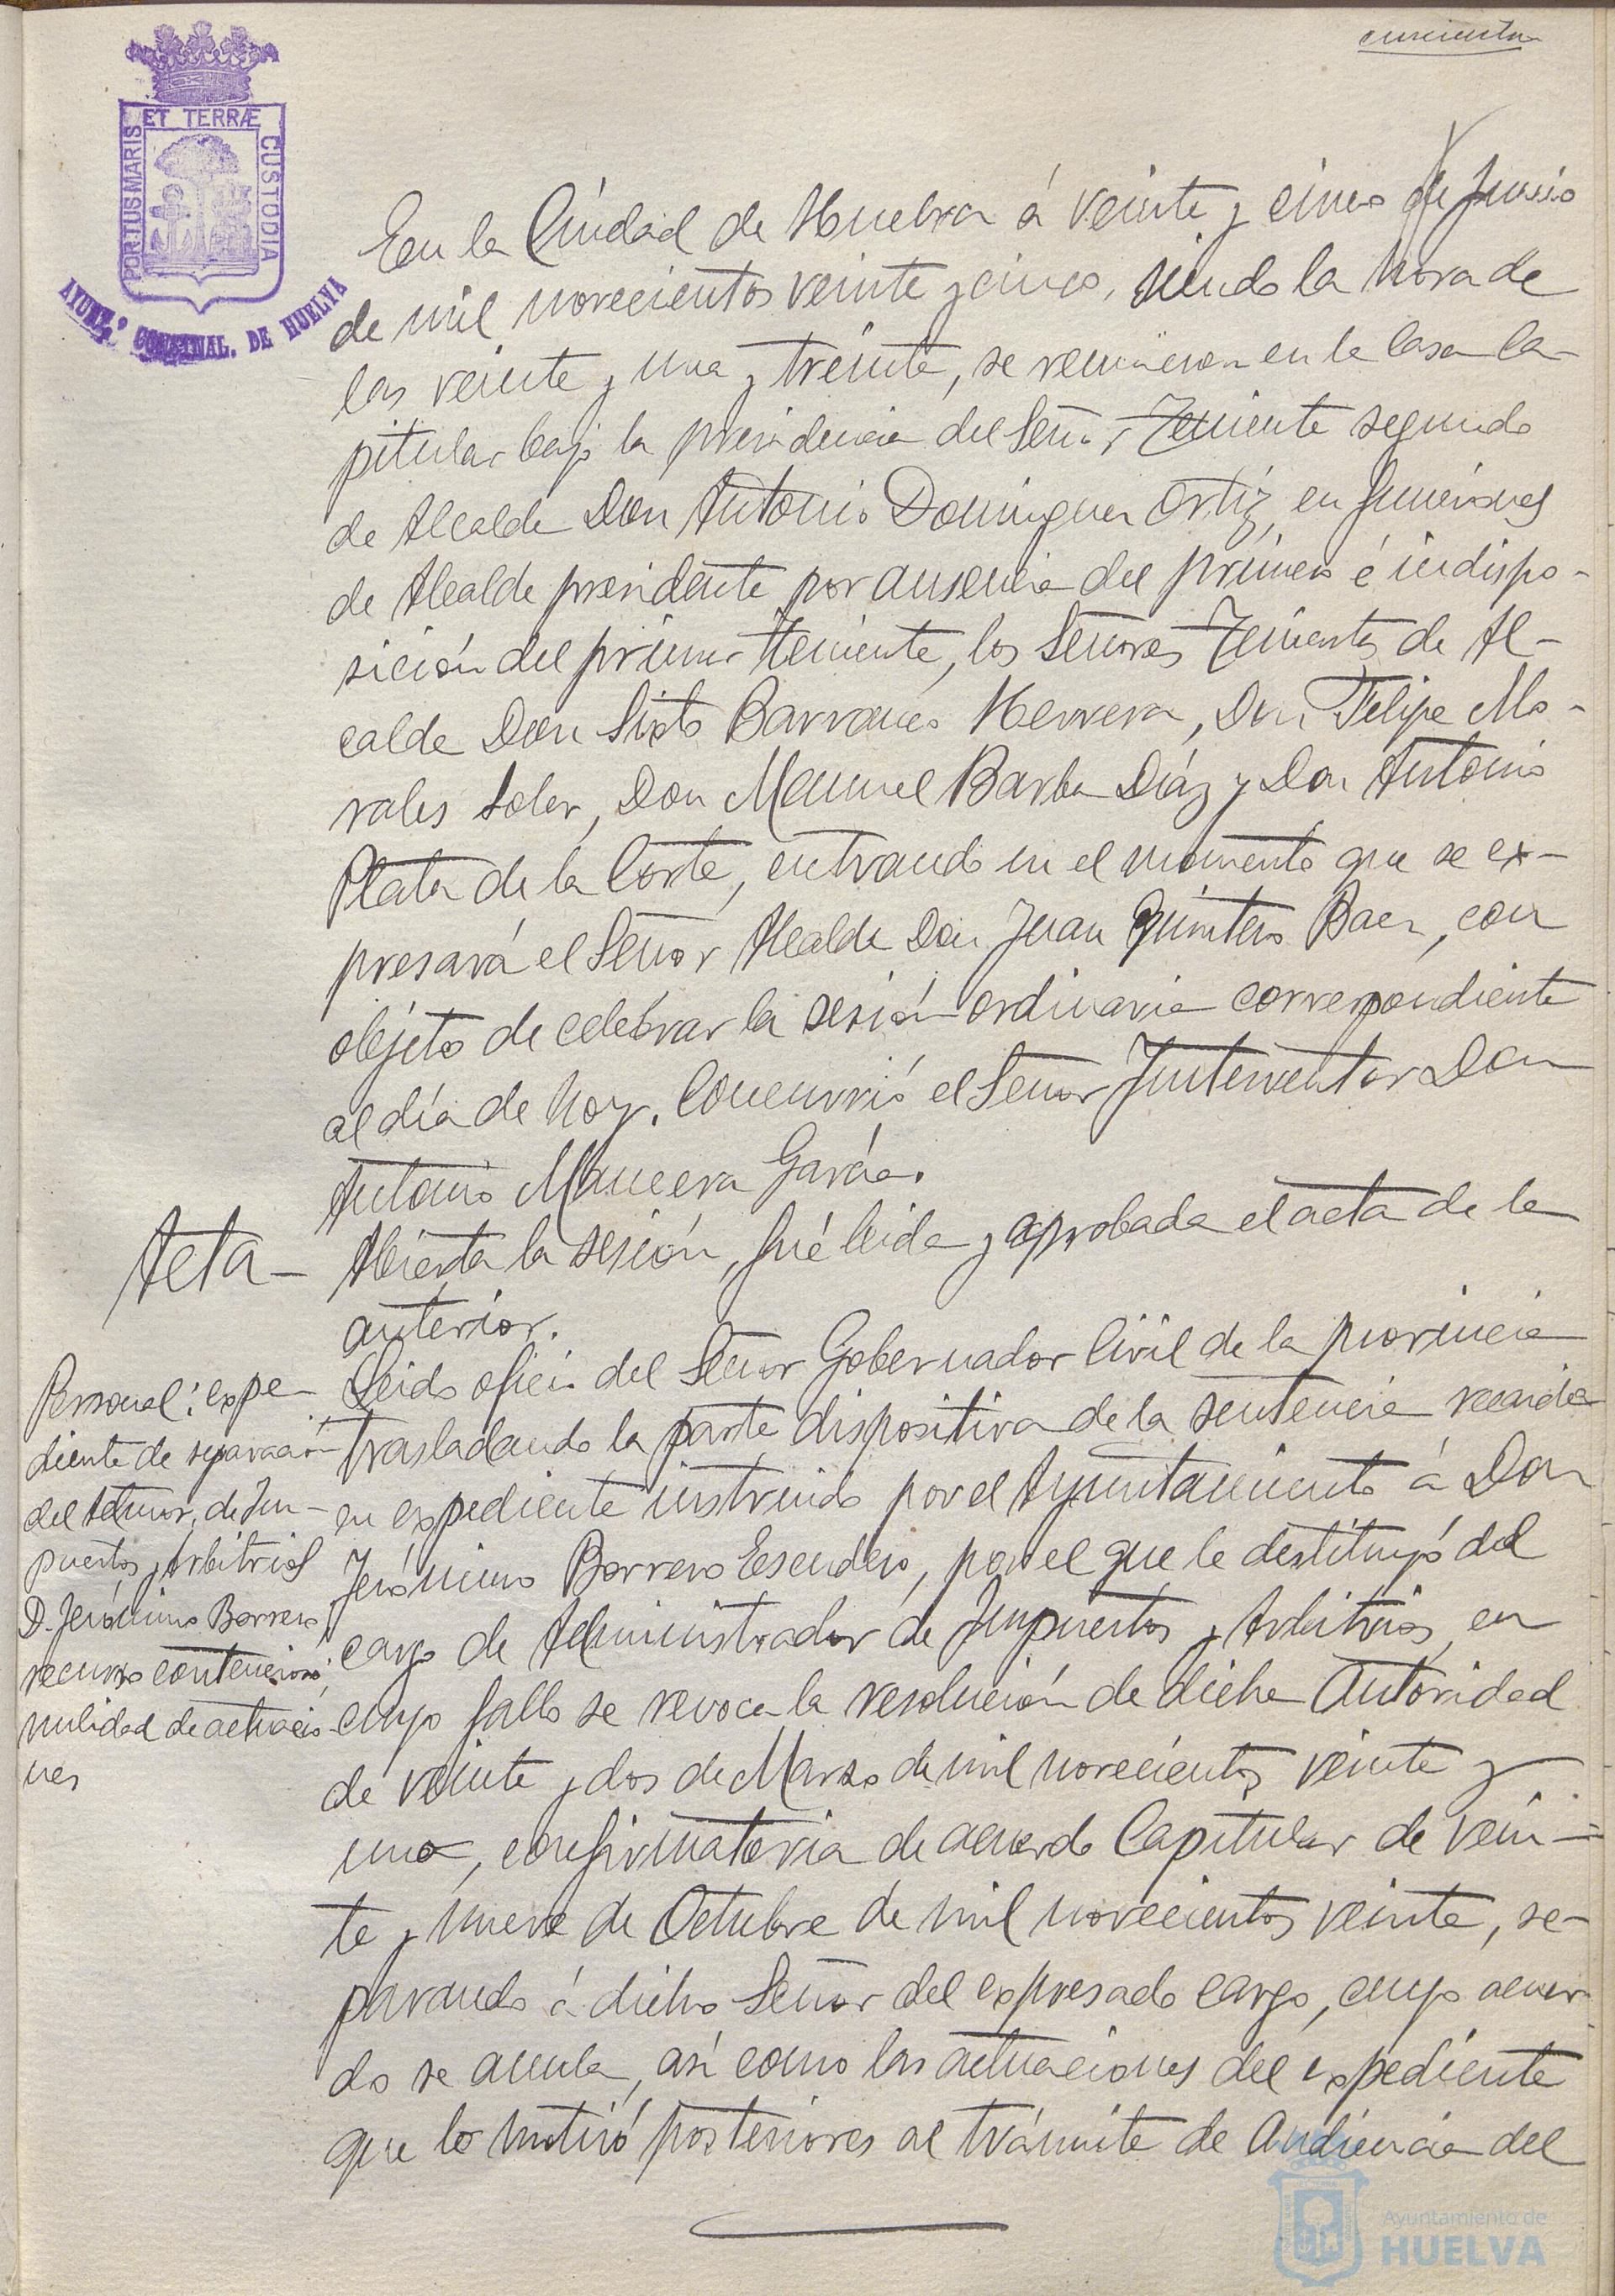 cincuenta
ET TERRÆ
PORTUS MARIS
CUSTODIA
AYUNT.º CONST NAL. DE HUELVA
En la Ciudad de Huelva á veinte y cinco de Junio
de mil novecientos veinte y cinco, siendo la hora de
las veinte y una y treinta, se reunieron en la Casa Ca-
pitular bajo la presidencia del Señor Teniente segundo
de Alcalde Don Antonio Dominguez Ortiz, en funciones
de Alcalde presidente por ausencia del primero é indispo-
sición del primer teniente, los Señores Tenientes de Al-
calde Don Sixto Barranco Herrera, Don Felipe Mo-
rales Soler, Don Manuel Barba Diáz y Don Antonio
Plata de la Corte, entrando en el momento que se ex-
presará el Señor Alcalde Don Juan Quintero Baez, con
objeto de celebrar la sesión ordinaria correspondiente
al día de hoy. Concurrió el Señor Interventor Don
Antonio Mancera García.
Acta-
Abierta la sesión, fué leida y aprobada el acta de la
anterior.
Personal: expe-
diente de separación
del Admor. de Im-
puestos y Arbitrios
D. Jerónimo Borrero
recurso contencioso;
nulidad de actuacio-
nes
Leido oficio del Señor Gobernador Civil de la provincia
trasladando la parte dispositiva de la sentencia recaida
en expediente instruido por el Ayuntamiento á Don
Jerónimo Borrero Escudero, por el que le destituyó del
cargo de Administrador de Impuestos y Arbitrios, en
cuyo fallo se revoca la resolución de dicha Autoridad
de veinte y dos de Marzo de mil novecientos veinte y
uno, confirmatoria de acuerdo Capitular de vein-
te y nueve de Octubre de mil novecientos veinte, se-
parando á dicho Señor del expresado cargo, cuyo acuer-
do se anula, así como las actuaciones del expediente
que lo motivó posteriores al trámite de Audiencia del
Ayuntamiento de
HUELVA